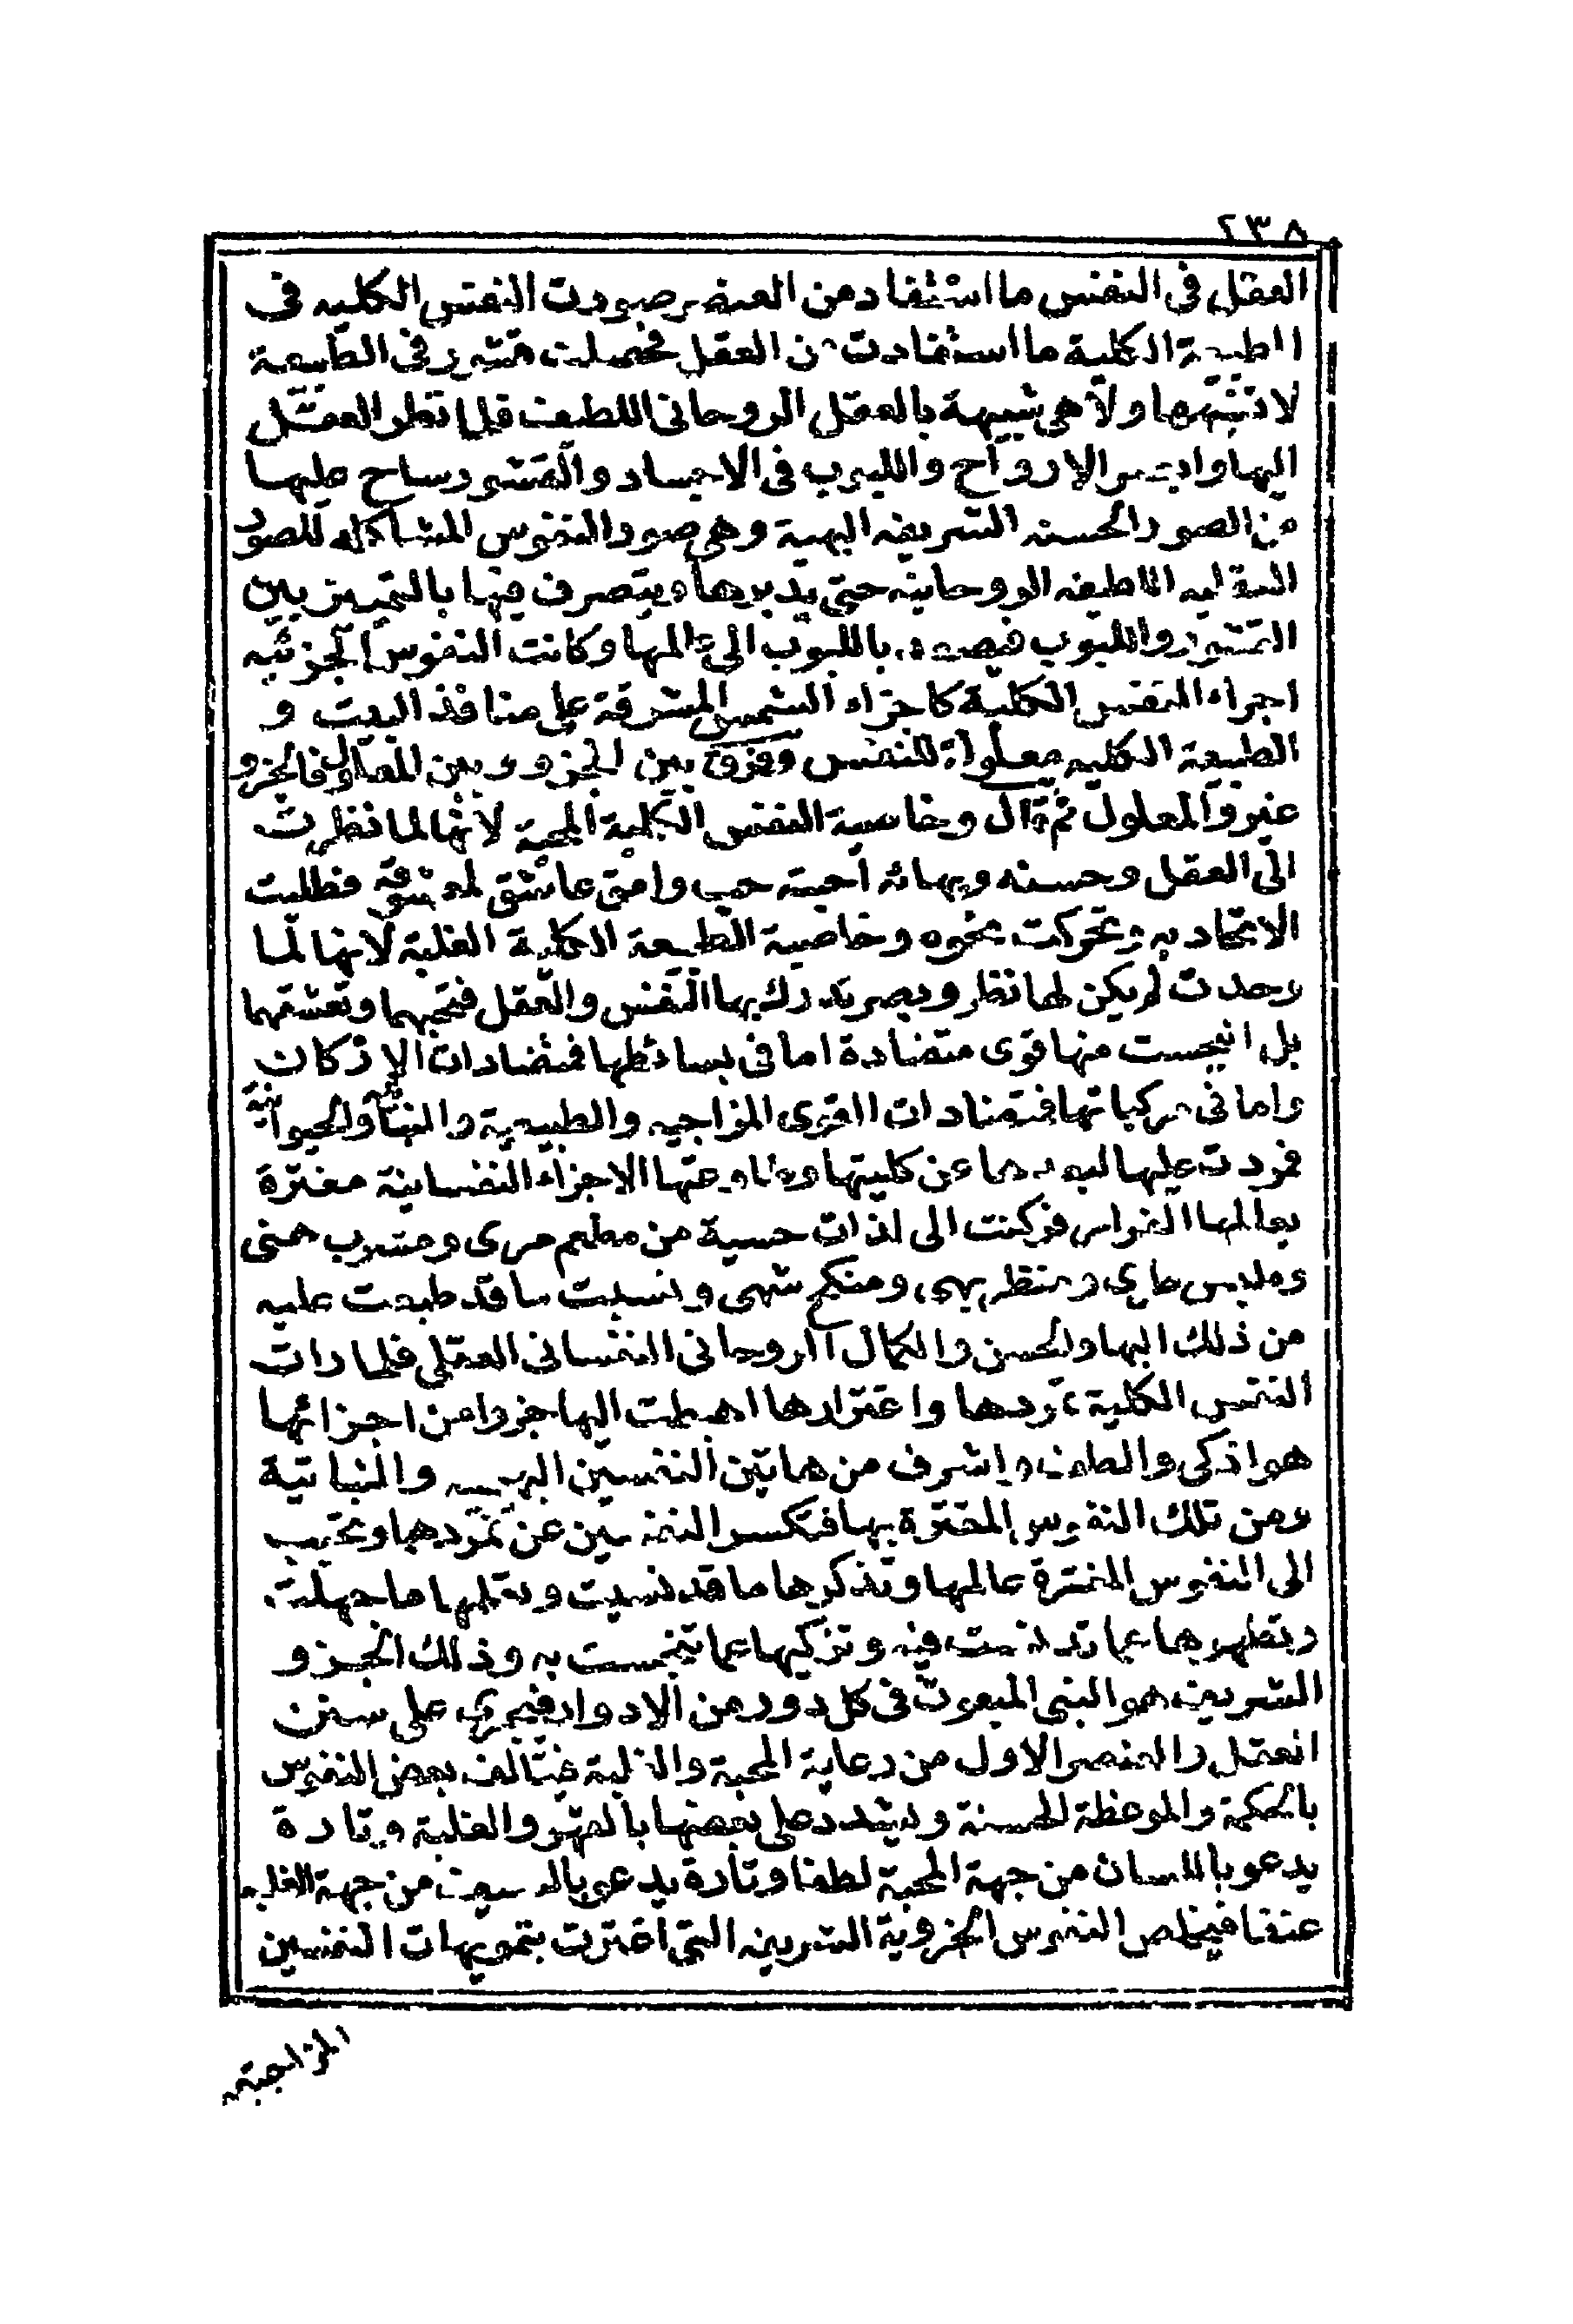 ٢٣٨
العقل في النفس ما استفاد من العنصر صورت النفس الكليه في
الطبيعة الكلية ما استفادت من العقل فحصلت قشور في الطبيعة
لا تشبهها ولا هي شبيهة بالعقل الروحاني اللطيف فلما نظر العقل
اليها وابصر الارواح واللبوب في الاجساد والقشور ساح عليها
من الصور الحسنه الشريفه البهية وهي صور النفوس المشاكله للصور
العقليه اللطيفه الروحانيه حتى يدبرها ويتصرف فيها بالتمييز بين
القشور واللبوب فيصعد باللبوب الى عالمها وكانت النفوس الجزئيه
اجزاء النفس الكلية كاجزاء الشمس المشرقة على منافذ البيت و
الطبيعة الكليه معلولة للنفس وفرق بين الجزو وبين المعلول فالجزو
غير والمعلول ثم قال وخاصية النفس الكلية المحبة لانها لما نظرت
الى العقل وحسنه وبهائه احبته حب وامق عاشق لمعشوقه فطلبت
الاتحاد به وتحركت نحوه وخاصية الطبيعة الكلية الغلبة لانها لما
وحدت لم يكن لها نظر وبصر تدرك بها النفس والعقل فتحبهما وتعشقهما
بل انبجست منها قوى متضادة اما في بسائطها فمتضادات الاركان
واما في مركباتها فمتضادات القوى المزاجيه والطبيعية والنباتيه والحيوانية
فمردت عليها لبعدها عن كليتها وطاوعتها الاجزاء النفسانية مغترة
بعالمها الغرار فركنت الى لذات حسية من مطعم مرى ومشرب هنى
وملبس طرى ومنظر بهى ومنكح شهى ونسيت ما قد طبعت عليه
من ذلك البها والحسن والكمال الروحاني النفساني العقلي فلما رات
النفس الكلية تمردها واغترارها اهبطت اليها جزوا من اجزائها
هو اذكى والطف واشرف من هاتين النفسين البهيميه والنباتية
ومن تلك النفوس المغترة بها فتكسر النفسين عن تمردهما وتحبب
الى النفوس المغترة عالمها وتذكرها ما قد نسيت وتعلمها ما جهلت
وتطهرها عما تدنست فيه وتزكيها عما تنجست به وذلك الجزو
الشريف هو النبي المبعوث في كل دور من الادوار فيجرى على سنن
العقل والعنصر الاول من رعاية المحبة والغلبة فيتالف بعض النفوس
بالحكمة والموعظة الحسنة ويشدد على بعضها بالقهر والغلبة وتارة
يدعو باللسان من جهة المحبة لطفا وتارة يدعو بالسيف من جهة الغلبه
عنفا فيخلص النفوس الجزوية الشريفه التي اغترت بتمويهات النفسين
المزاجيتين